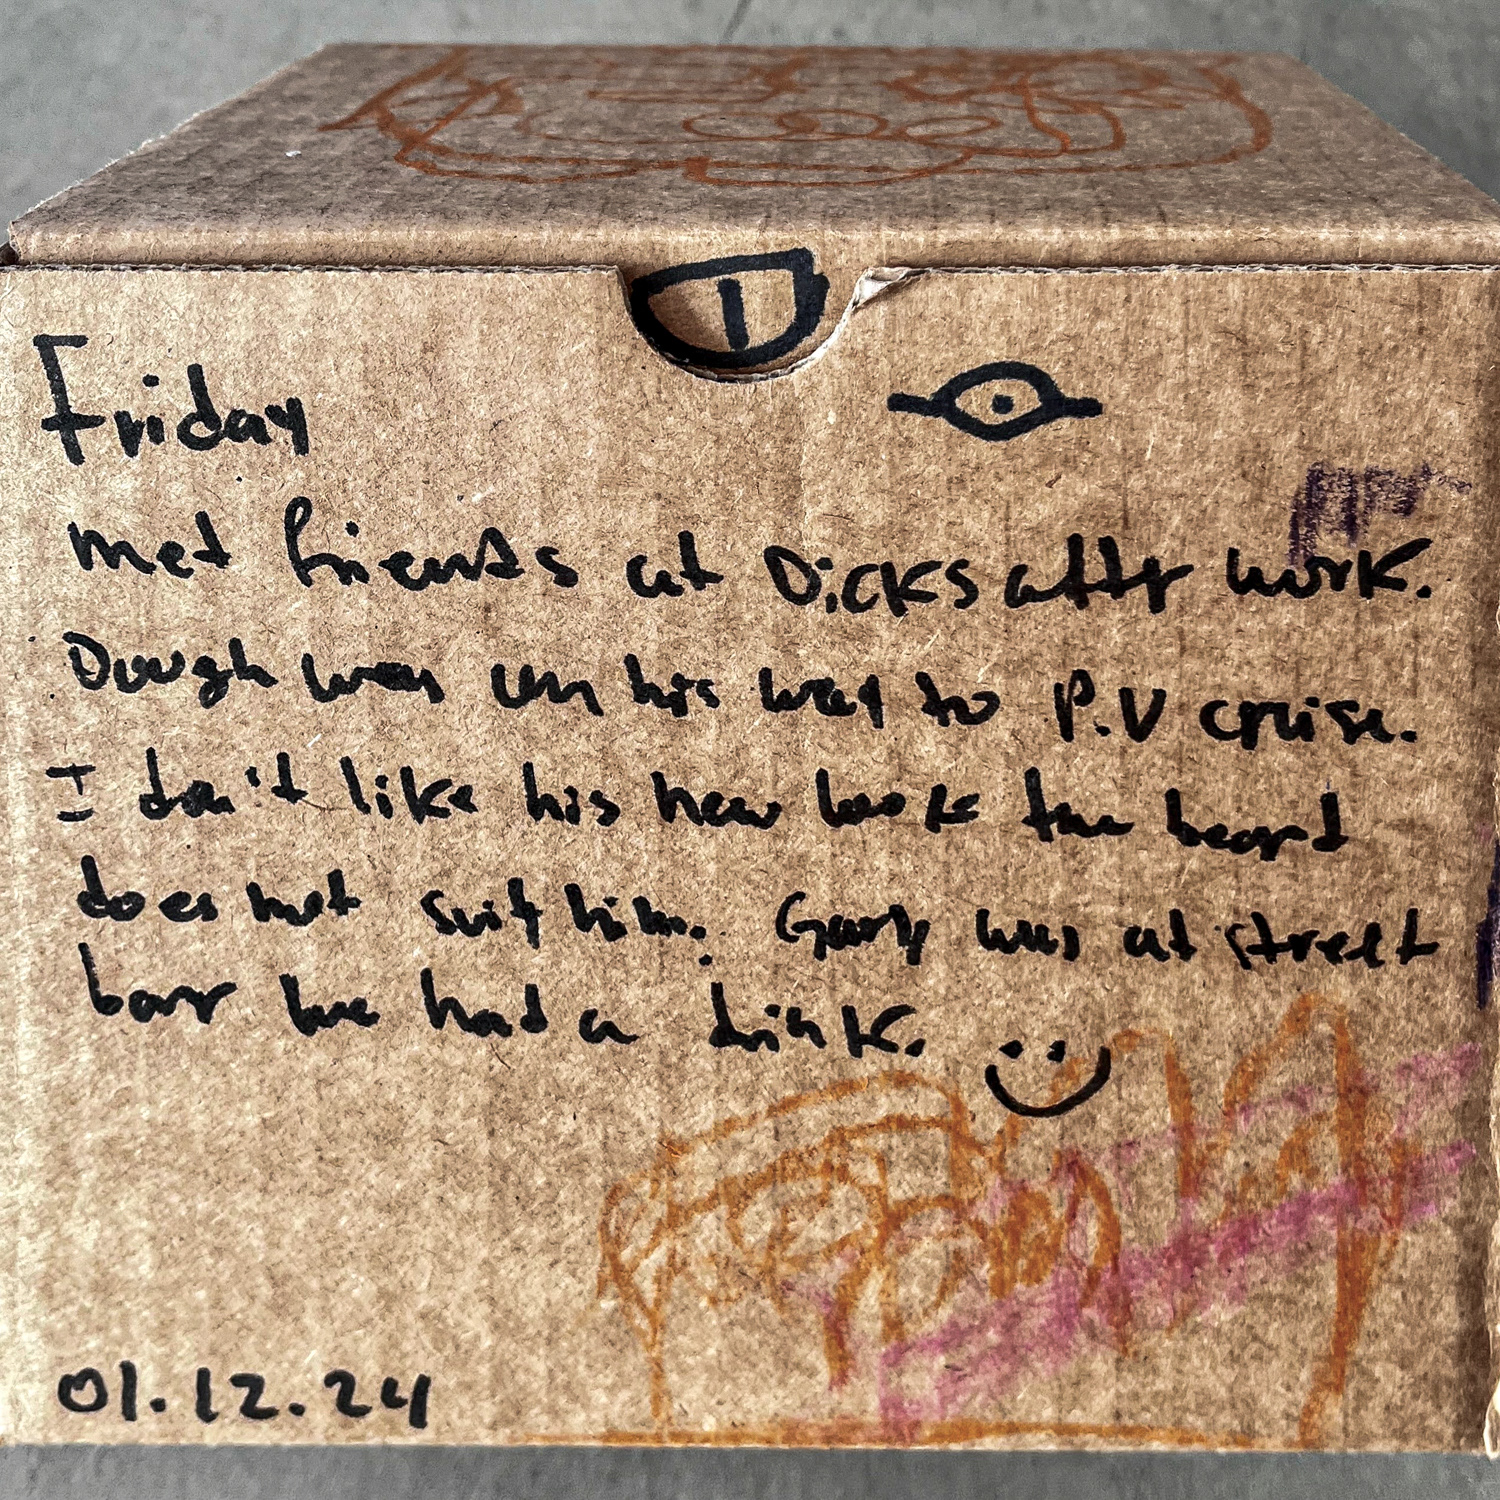 Friday
met friends at Dicks after work.
Dough was on his way to P.V cruise.
I don't like his new look the beard
does not suit him. Gary was at street
bar we had a drink.
01.12.24